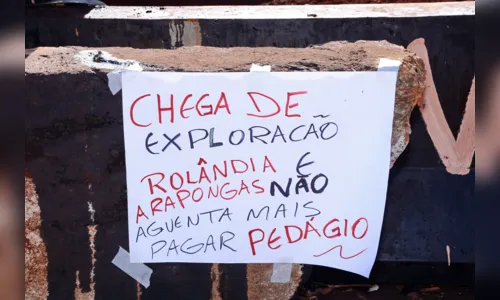 CHEGA DE
EXPLORACÃO
ROLÂNDIA E
ARAPONGAS NÃO
AGUENTA MAIS
PAGAR PEDÁGIO